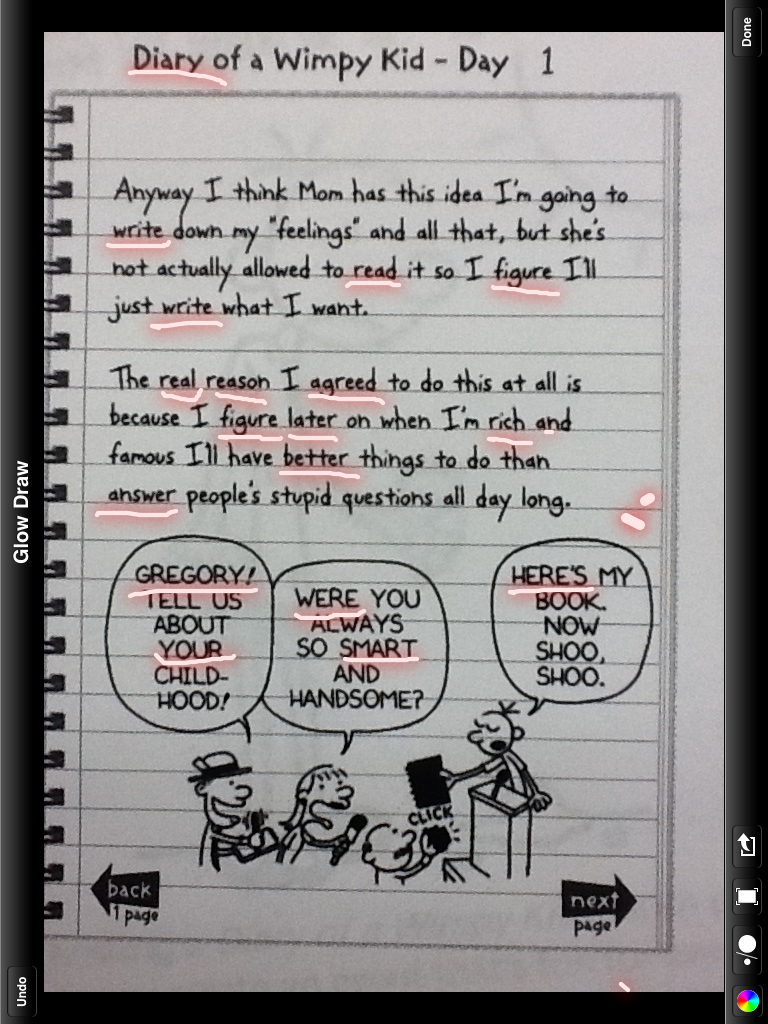 Diary of a Wimpy Kid - Day 1
Anyway I think Mom has this idea I'm going to
write down my "feelings" and all that, but she's
not actually allowed to read it so I figure I'll
just write what I want.
The real reason I agreed to do this at all is
because I figure later on when I'm rich and
famous I'll have better things to do than
answer people's stupid questions all day long.
GREGORY!
TELL US
ABOUT
YOUR
CHILD-
HOOD!
WERE YOU
ALWAYS
SO SMART
AND
HANDSOME?
HERE'S MY
BOOK.
NOW
SHOO,
SHOO.
CLICK
back
1 page
next
page
Glow Draw
Undo
Done